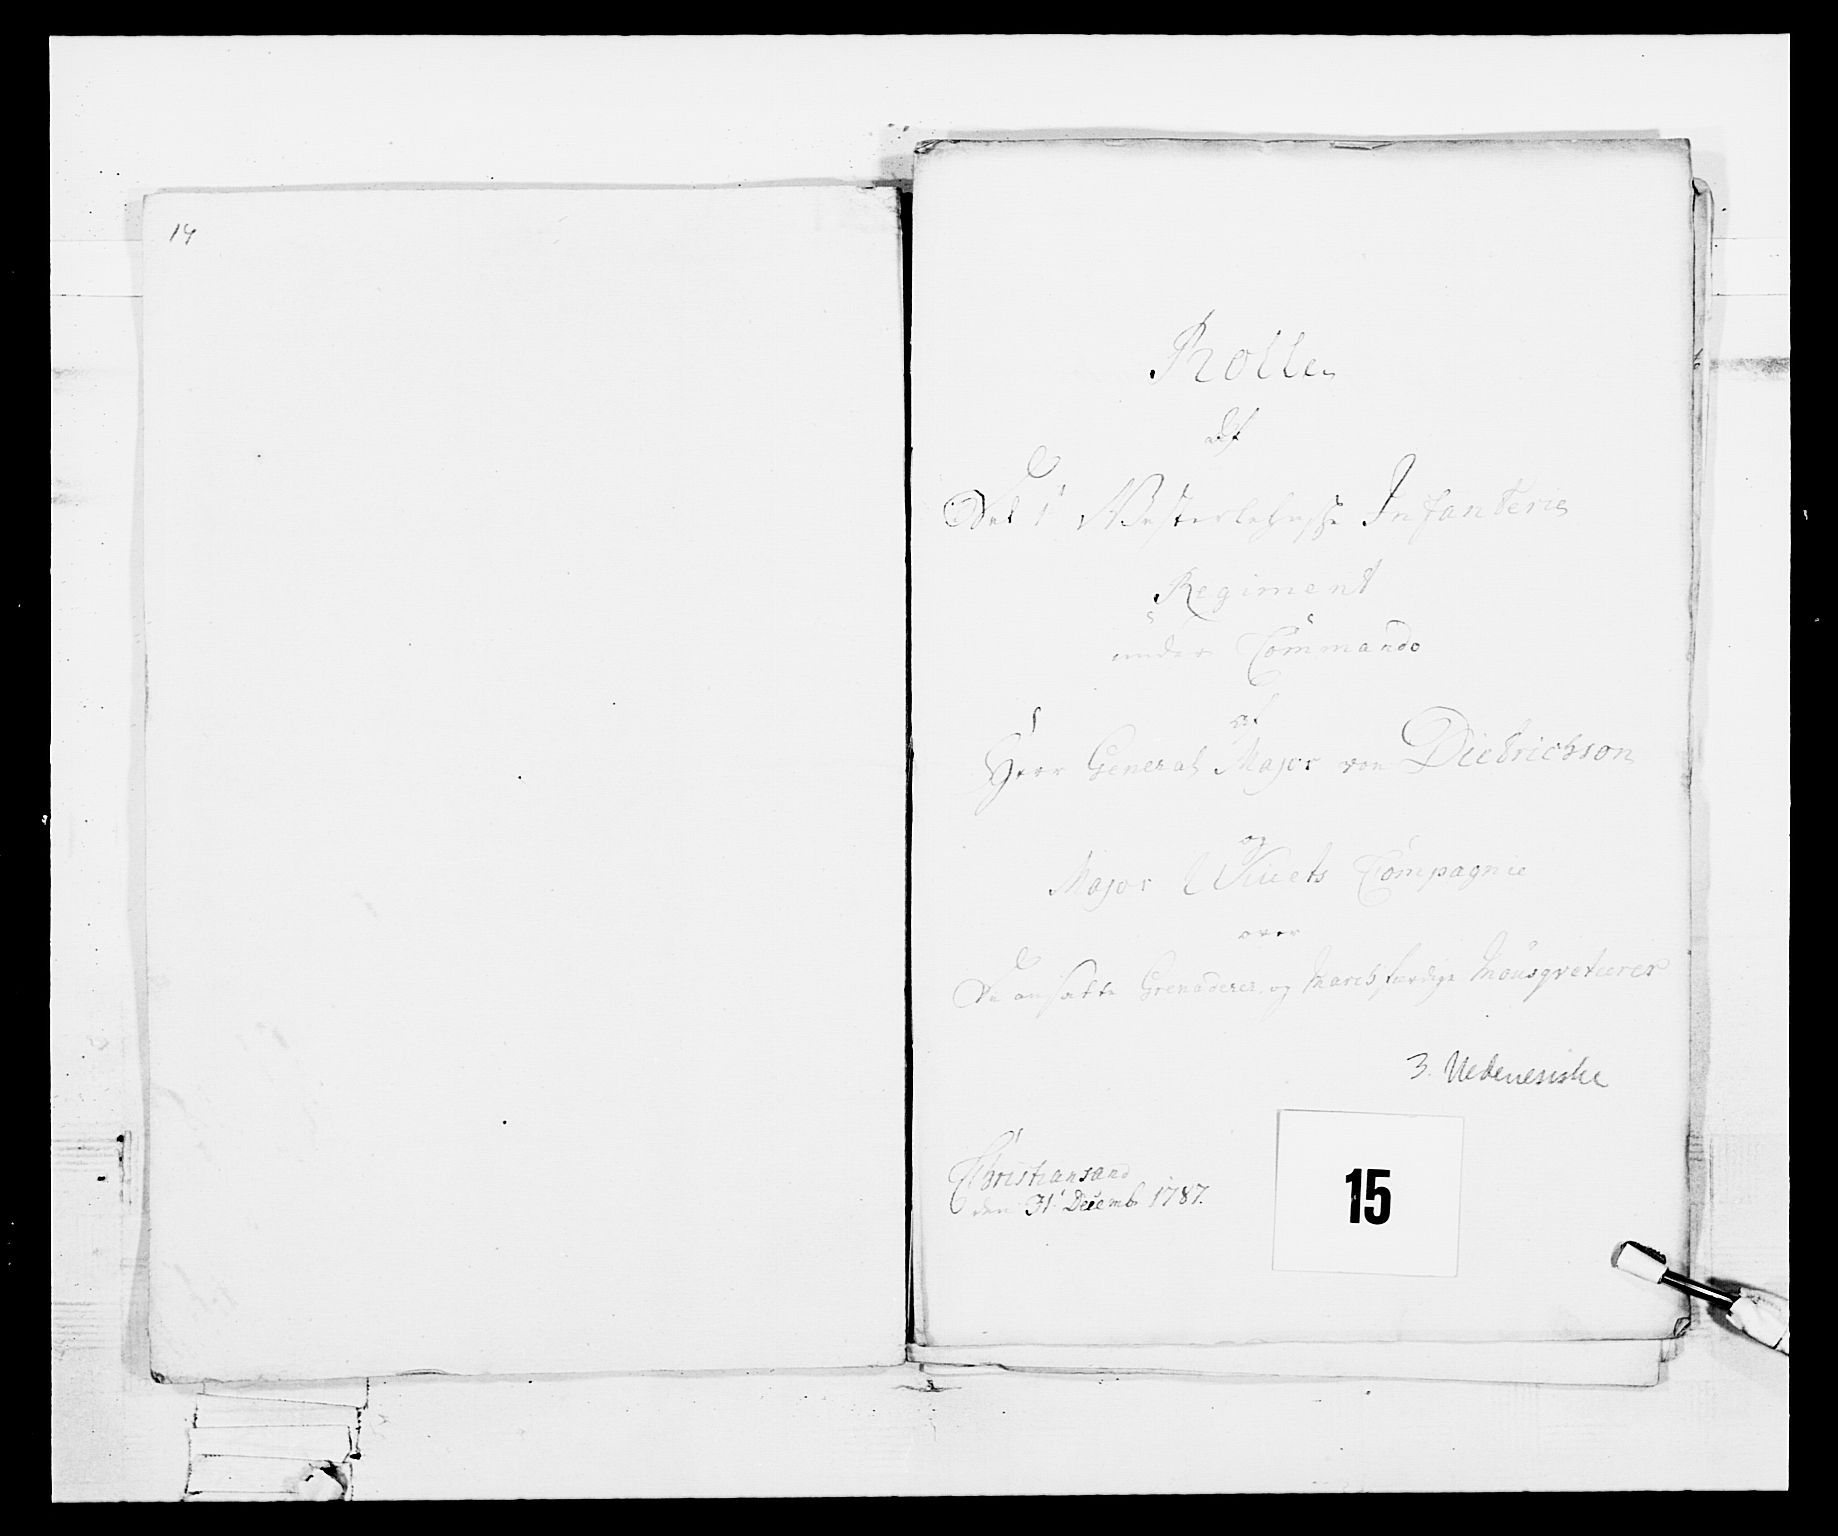 14
Rolle
af
Det 1te Westerlehnske Infanterie
Regiment
under Commando
af
Herr General Major von Dietrichson
og
Major Compagnie
over
De ansatte Grenaderer og March færdige Mousqveteerer
3. Nedenesiske
Christiansand
den 31 Decemb 1787.
15